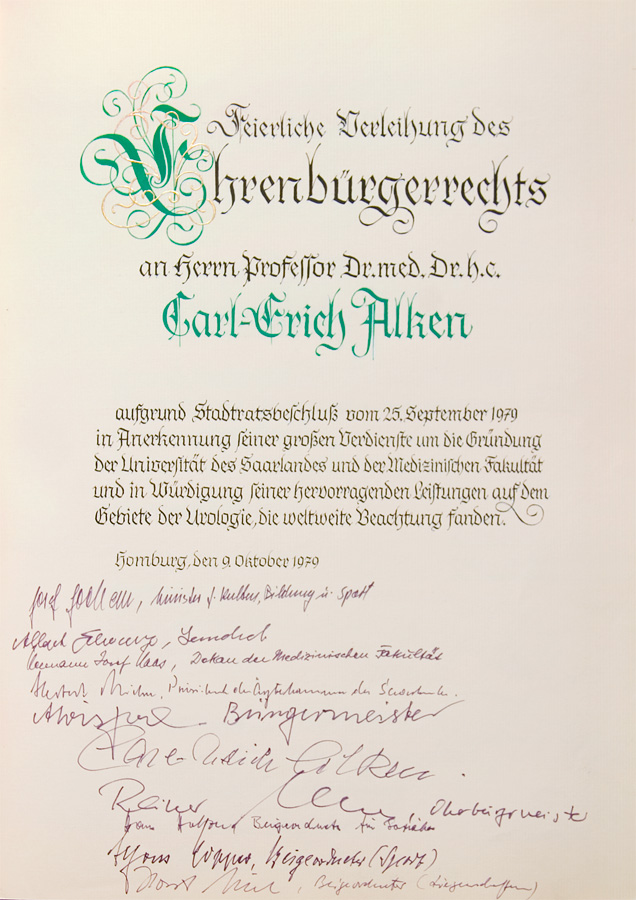 Feierliche Verleihung des
Ehrenbürgerrechts
an Herrn Professor Dr. med. Dr. h. c.
Carl-Erich Alken
aufgrund Stadtratsbeschluß vom 25. September 1979
in Anerkennung seiner großen Verdienste um die Gründung
der Universität des Saarlandes und der Medizinischen Fakultät
und in Würdigung seiner hervorragenden Leistungen auf dem
Gebiete der Urologie, die weltweite Beachtung fanden.
Homburg, den 9. Oktober 1979
Josef Jochem, Minister f. Kultus, Bildung u. Sport
Landrat
Hermann Josef Haas, Dekan der Medizinischen Fakultät
Herbert Präsident der Ärztekammer des Saarlandes.
Bürgermeister
Carl-Erich Alken.
Reiner Oberbürgermeister
Hans Beigeordneter für Soziales
Alfons Beigeordneter (Sport)
Horst Beigeordneter (Liegenschaften)